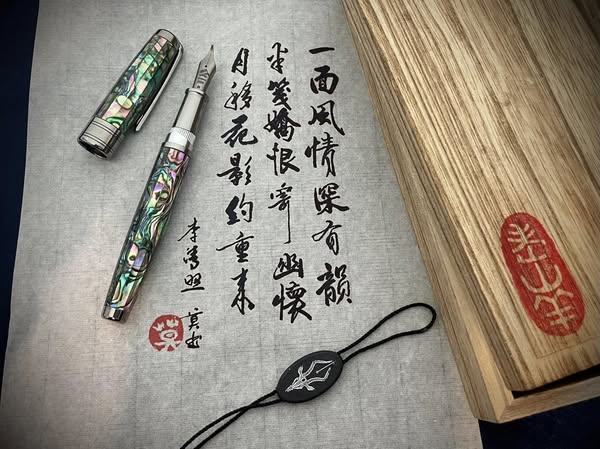 一面风情深有韻
半箋嬌恨寄幽懷
月移花影約重来
李清照